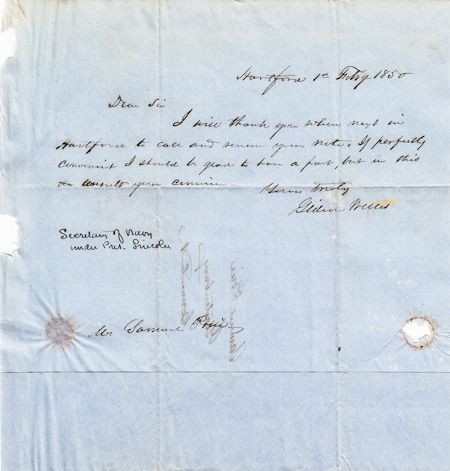 Hartford 1st Feby 1850
Dear Sir
I will thank you when next in
Hartford to call and renew your note. If perfectly
convenient I should be glad to have a part, but in this
consult your convenience
Yours truly
Gideon Welles
Secretary of Navy
under Pres. Lincoln
Mr Samuel